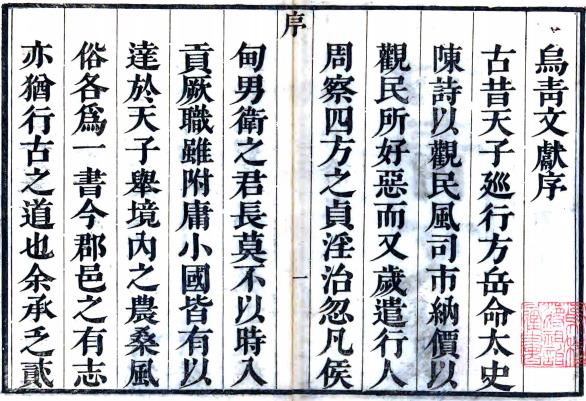 烏青文獻序
古昔天子廵行方岳命太史
陳詩以觀民風司市納價以
觀民所好惡而又歲遣行人
周察四方之貞淫治忽凡侯
序
一
甸男衛之君長莫不以時入
貢厥職雖附庸小國皆有以
達於天子舉境內之農桑風
俗各爲一書今郡邑之有志
亦猶行古之道也余承乏貳